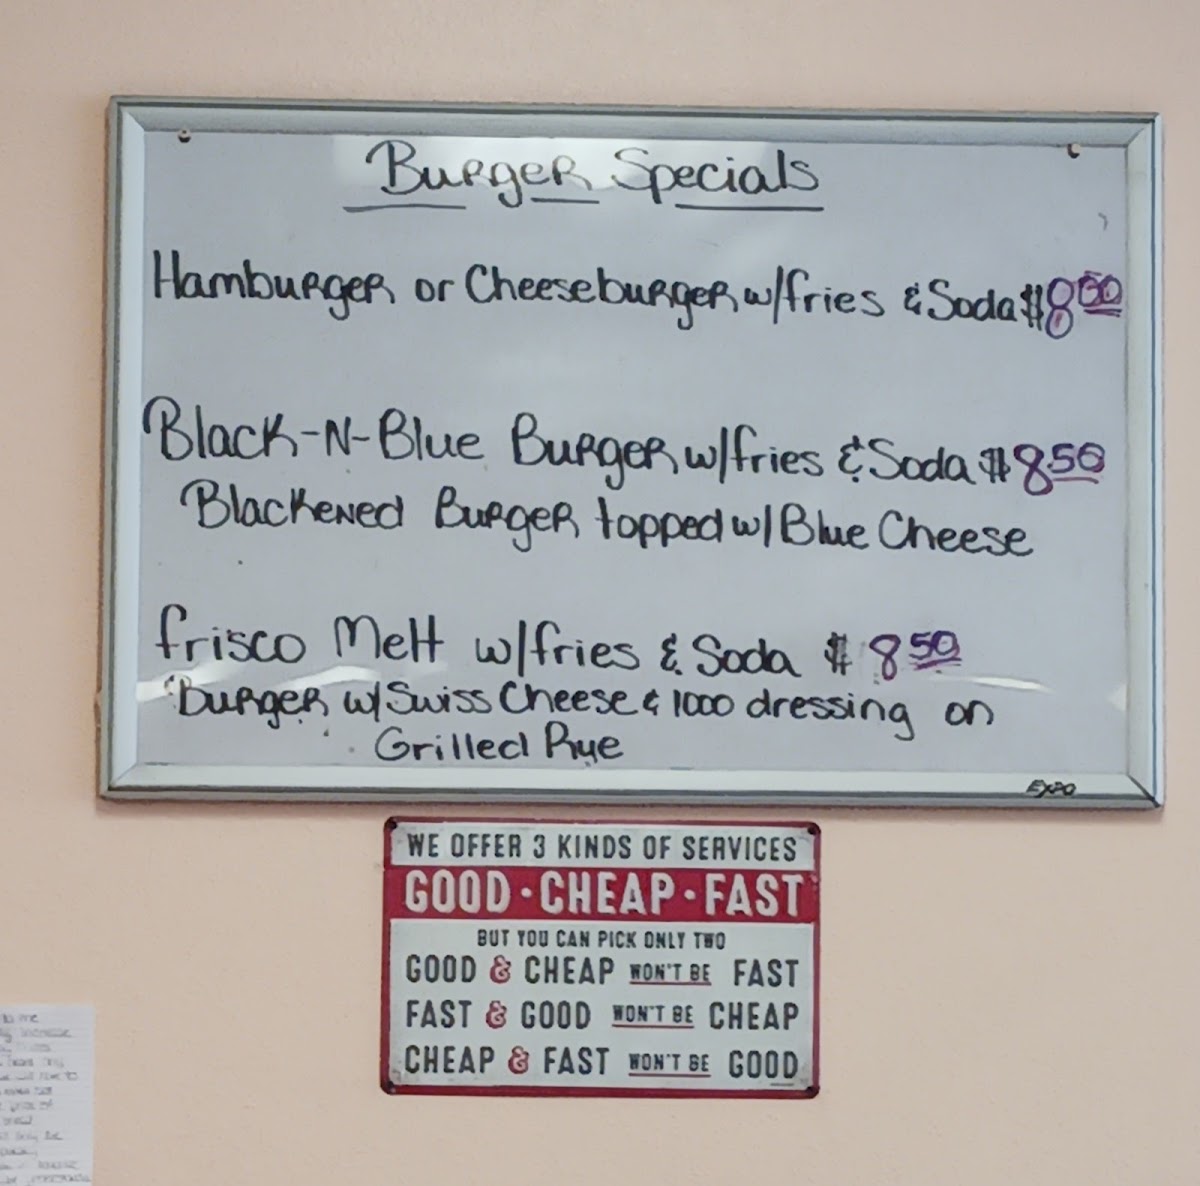 Burger Specials
Hamburger or Cheeseburger w/fries & Soda $8.50
Black-N-Blue Burger w/fries & Soda $8.50
Blackened Burger topped w/Blue Cheese
Frisco Melt w/fries & Soda $8.50
Burger w/Swiss Cheese & 1000 dressing on
Grilled Rye
EXPO
WE OFFER 3 KINDS OF SERVICES
GOOD · CHEAP · FAST
BUT YOU CAN PICK ONLY TWO
GOOD & CHEAP WON'T BE FAST
FAST & GOOD WON'T BE CHEAP
CHEAP & FAST WON'T BE GOOD